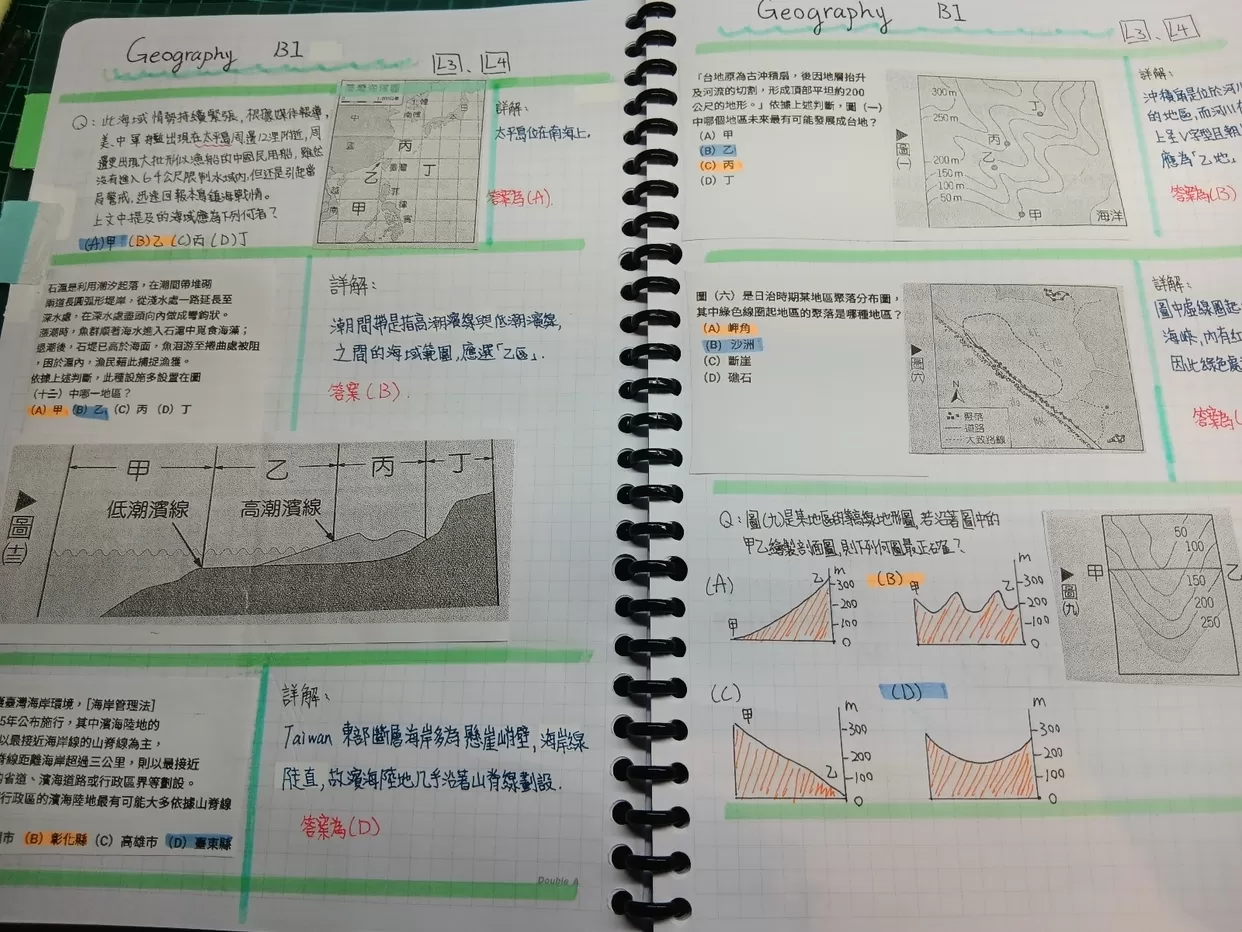 Geography B1
L3、L4
Q：此海域情勢持續緊張，根據媒體報導，
美、中軍艦出現在太平島周邊12浬附近，周
邊更出現大批形似漁船的中國民用船，雖然
沒有進入6千公尺限制水域內，但還是引起當
局警戒，迅速回報本島鎮海戰情。
上文中提及的海域應為下列何者？
(A)甲 (B)乙 (C)丙 (D)丁
臺灣海域圖
丙
乙
丁
甲
臺灣
菲
律
賓
詳解：
太平島位在南海上，
答案為(A).
石滬是利用潮汐起落，在潮間帶堆砌
兩道長圓弧形堤岸，從淺水處一路延長至
深水處，在深水處盡頭向內做成彎鉤狀。
漲潮時，魚群順著海水進入石滬中覓食海藻；
退潮後，石堤已高於海面，魚洄游至捲曲處被阻
，困於滬內，漁民藉此捕捉漁獲。
依據上述判斷，此種設施多設置在圖
（十二）中哪一地區？
(A) 甲 (B) 乙 (C) 丙 (D) 丁
詳解：
潮間帶是指高潮濱線與低潮濱線，
之間的海域範圍，應選「乙區」.
答案(B).
圖(十二)
甲 乙 丙 丁
低潮濱線
高潮濱線
臺灣海岸環境，[海岸管理法]
5年公布施行，其中濱海陸地的
以最接近海岸線的山脊線為主，
脊線距離海岸超過三公里，則以最接近
省道、濱海道路或行政區界等劃設。
行政區的濱海陸地最有可能大多依據山脊線
市 (B) 彰化縣 (C) 高雄市 (D) 臺東縣
詳解：
Taiwan 東部斷層海岸多為懸崖峭壁，海岸線
陡直，故濱海陸地几乎沿著山脊線劃設.
答案為(D)
Double A
Geography B1
L3、L4
「台地原為古沖積扇，後因地層抬升
及河流的切割，形成頂部平坦約200
公尺的地形。」依據上述判斷，圖（一）
中哪個地區未來最有可能發展成台地？
(A) 甲
(B) 乙
(C) 丙
(D) 丁
圖(一)
300 m
250 m
200 m
150 m
100 m
50 m
丁
丙
乙
甲
海洋
詳解：
沖積扇是位於河
的地區，而河川
上呈V字型且朝
應為「乙地」
答案為(B)
圖（六）是日治時期某地區聚落分布圖，
其中綠色線圈起地區的聚落是哪種地區？
(A) 岬角
(B) 沙洲
(C) 斷崖
(D) 礁石
圖(六)
N
聚落
道路
大致路線
詳解：
圖中虛線圈起
海峽，內有紅
因此綠色
答案為(
Q：圖(九)是某地區的等高線地形圖，若沿著圖中的
甲乙繪製剖面圖，則下列何圖最正確？
(A)
甲
乙
m
300
200
100
0
(B)
甲
乙
m
300
200
100
0
圖(九)
甲
乙
50
100
150
200
250
(C)
甲
乙
m
300
200
100
0
(D)
m
300
200
100
0